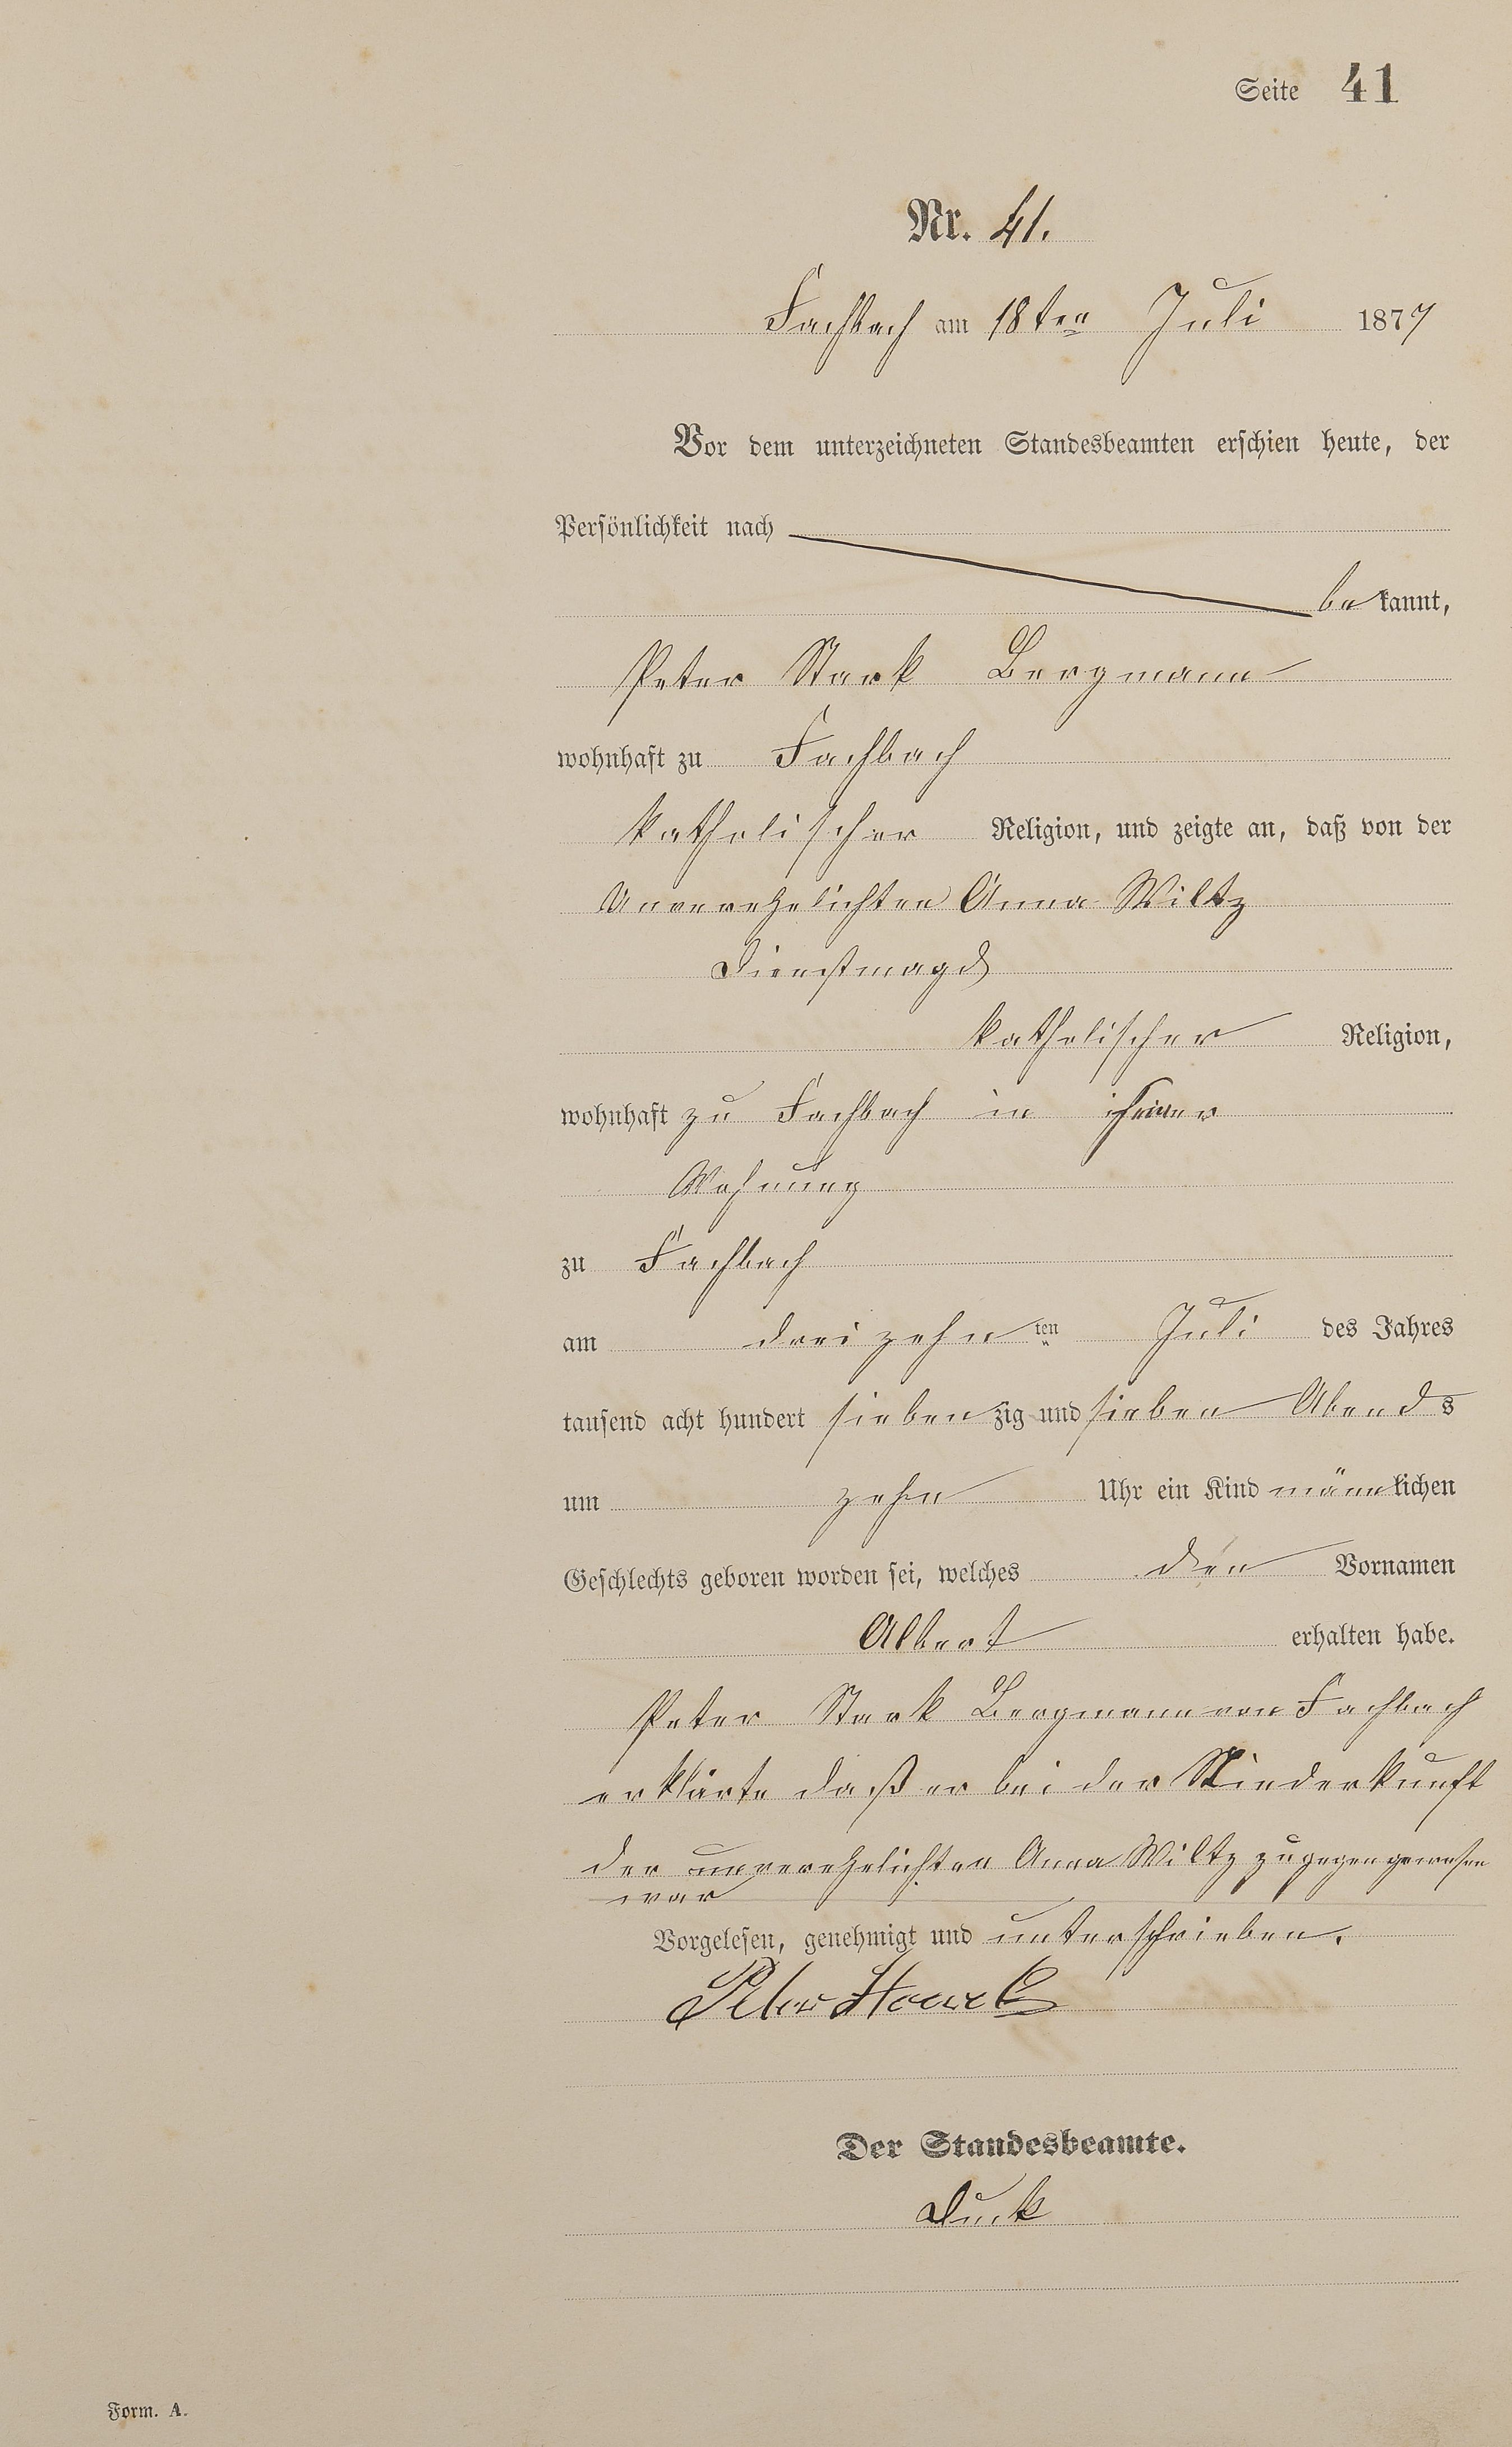 Seite 41
Nr. 41.
Fachbach am 18ten Juli 1877
Vor dem unterzeichneten Standesbeamten erschien heute, der
Persönlichkeit nach
be kannt,
Peter Stark Bergmann
wohnhaft zu Fachbach
katholischer Religion, und zeigte an, daß von der
Unverehelichten Anna Wiltz
Dienstmagd
katholischer Religion,
wohnhaft zu Fachbach in seiner
Wohnung
zu Fachbach
am dreizehn ten Juli des Jahres
tausend acht hundert sieben zig und sieben Abends
um zehn Uhr ein Kind männlichen
Geschlechts geboren worden sei, welches den Vornamen
Albert erhalten habe.
Peter Stark Bergmann von Fachbach
erklärte daß er bei der Niederkunft
der unverehelichten Anna Wiltz zugegen gewesen
war
Vorgelesen, genehmigt und unterschrieben.
Peter Starck
Der Standesbeamte.
Duck
Form. A.